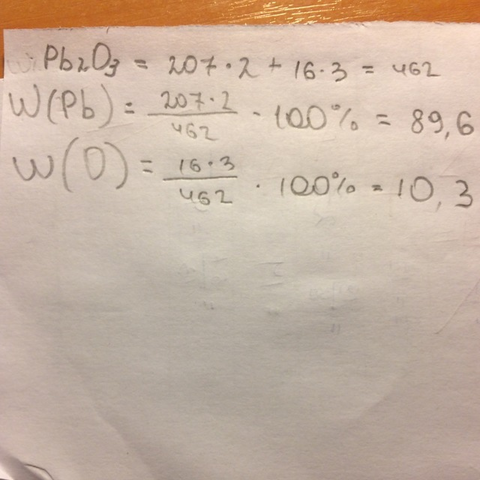 Pb₂O₃ = 207·2 + 16·3 = 462
W(Pb) = 207·2/462 · 100% = 89,6
W(O) = 16·3/462 · 100% = 10,3